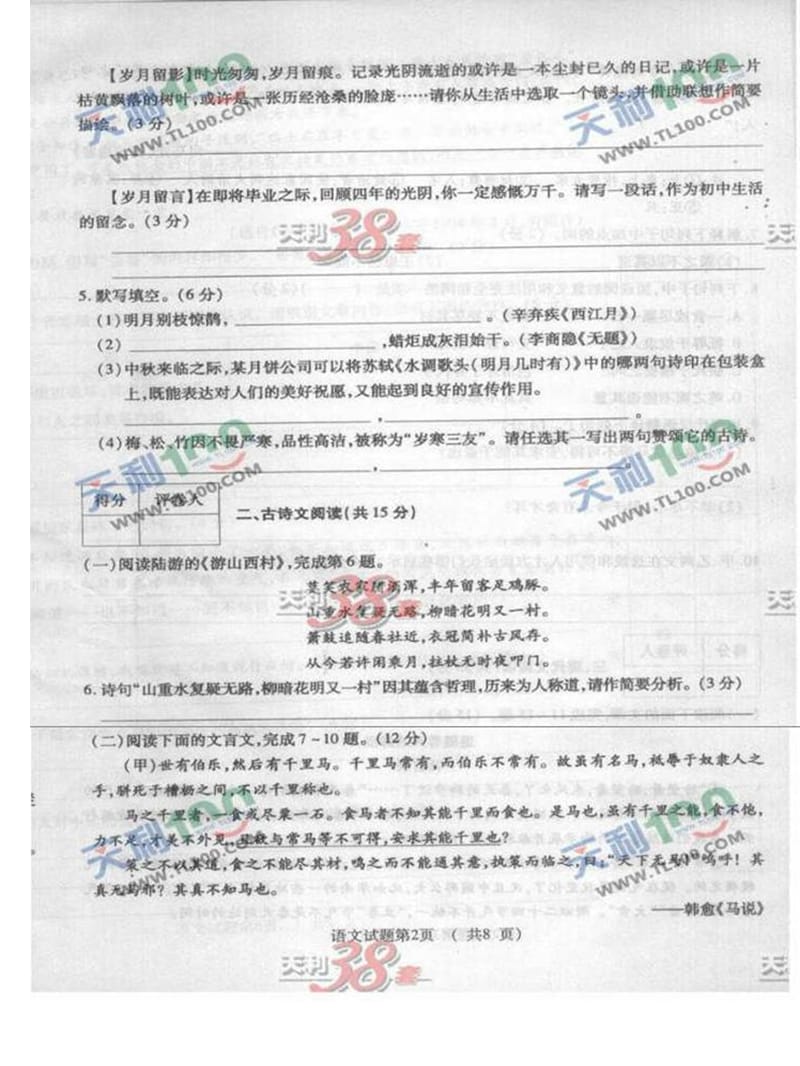 【岁月留影】时光匆匆,岁月留痕。记录光阴流逝的或许是一本尘封已久的日记,或许是一片
枯黄飘落的树叶,或许是一张历经沧桑的脸庞……请你从生活中选取一个镜头,并借助联想作简要
描绘。(3分)
【岁月留言】在即将毕业之际,回顾四年的光阴,你一定感慨万千。请写一段话,作为初中生活
的留念。(3分)
5.默写填空。(6分)
(1)明月别枝惊鹊, 。(辛弃疾《西江月》)
(2) ,蜡炬成灰泪始干。(李商隐《无题》)
(3)中秋来临之际,某月饼公司可以将苏轼《水调歌头(明月几时有)》中的哪两句诗印在包装盒
上,既能表达对人们的美好祝愿,又能起到良好的宣传作用。
, 。
(4)梅、松、竹因不畏严寒,品性高洁,被称为“岁寒三友”。请任选其一写出两句赞颂它的古诗。
, 。
得分 评卷人
二、古诗文阅读(共15分)
(一)阅读陆游的《游山西村》,完成第6题。
莫笑农家腊酒浑,丰年留客足鸡豚。
山重水复疑无路,柳暗花明又一村。
箫鼓追随春社近,衣冠简朴古风存。
从今若许闲乘月,拄杖无时夜叩门。
6.诗句“山重水复疑无路,柳暗花明又一村”因其蕴含哲理,历来为人称道,请作简要分析。(3分)
(二)阅读下面的文言文,完成7~10题。(12分)
(甲)世有伯乐,然后有千里马。千里马常有,而伯乐不常有。故虽有名马,祗辱于奴隶人之
手,骈死于槽枥之间,不以千里称也。
马之千里者,一食或尽粟一石。食马者不知其能千里而食也。是马也,虽有千里之能,食不饱,
力不足,才美不外见,且欲与常马等不可得,安求其能千里也?
策之不以其道,食之不能尽其材,鸣之而不能通其意,执策而临之,曰:“天下无马!”呜呼!其
真无马邪?其真不知马也。
——韩愈《马说》
语文试题第2页 (共8页)
天利100
WWW.TL100.COM
天利38套